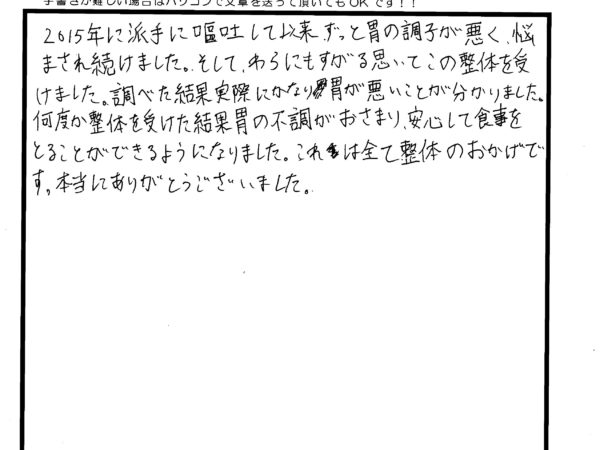 手書きが難しい場合はパソコンで文章を送って頂いてもOKです！！
2015年に派手に嘔吐して以来、ずっと胃の調子が悪く、悩
まされ続けました。そして、わらにもすがる思いでこの整体を受
けました。調べた結果実際にかなり胃が悪いことが分かりました。
何度か整体を受けた結果胃の不調がおさまり、安心して食事を
とることができるようになりました。これは全て整体のおかげで
す。本当にありがとうございました。